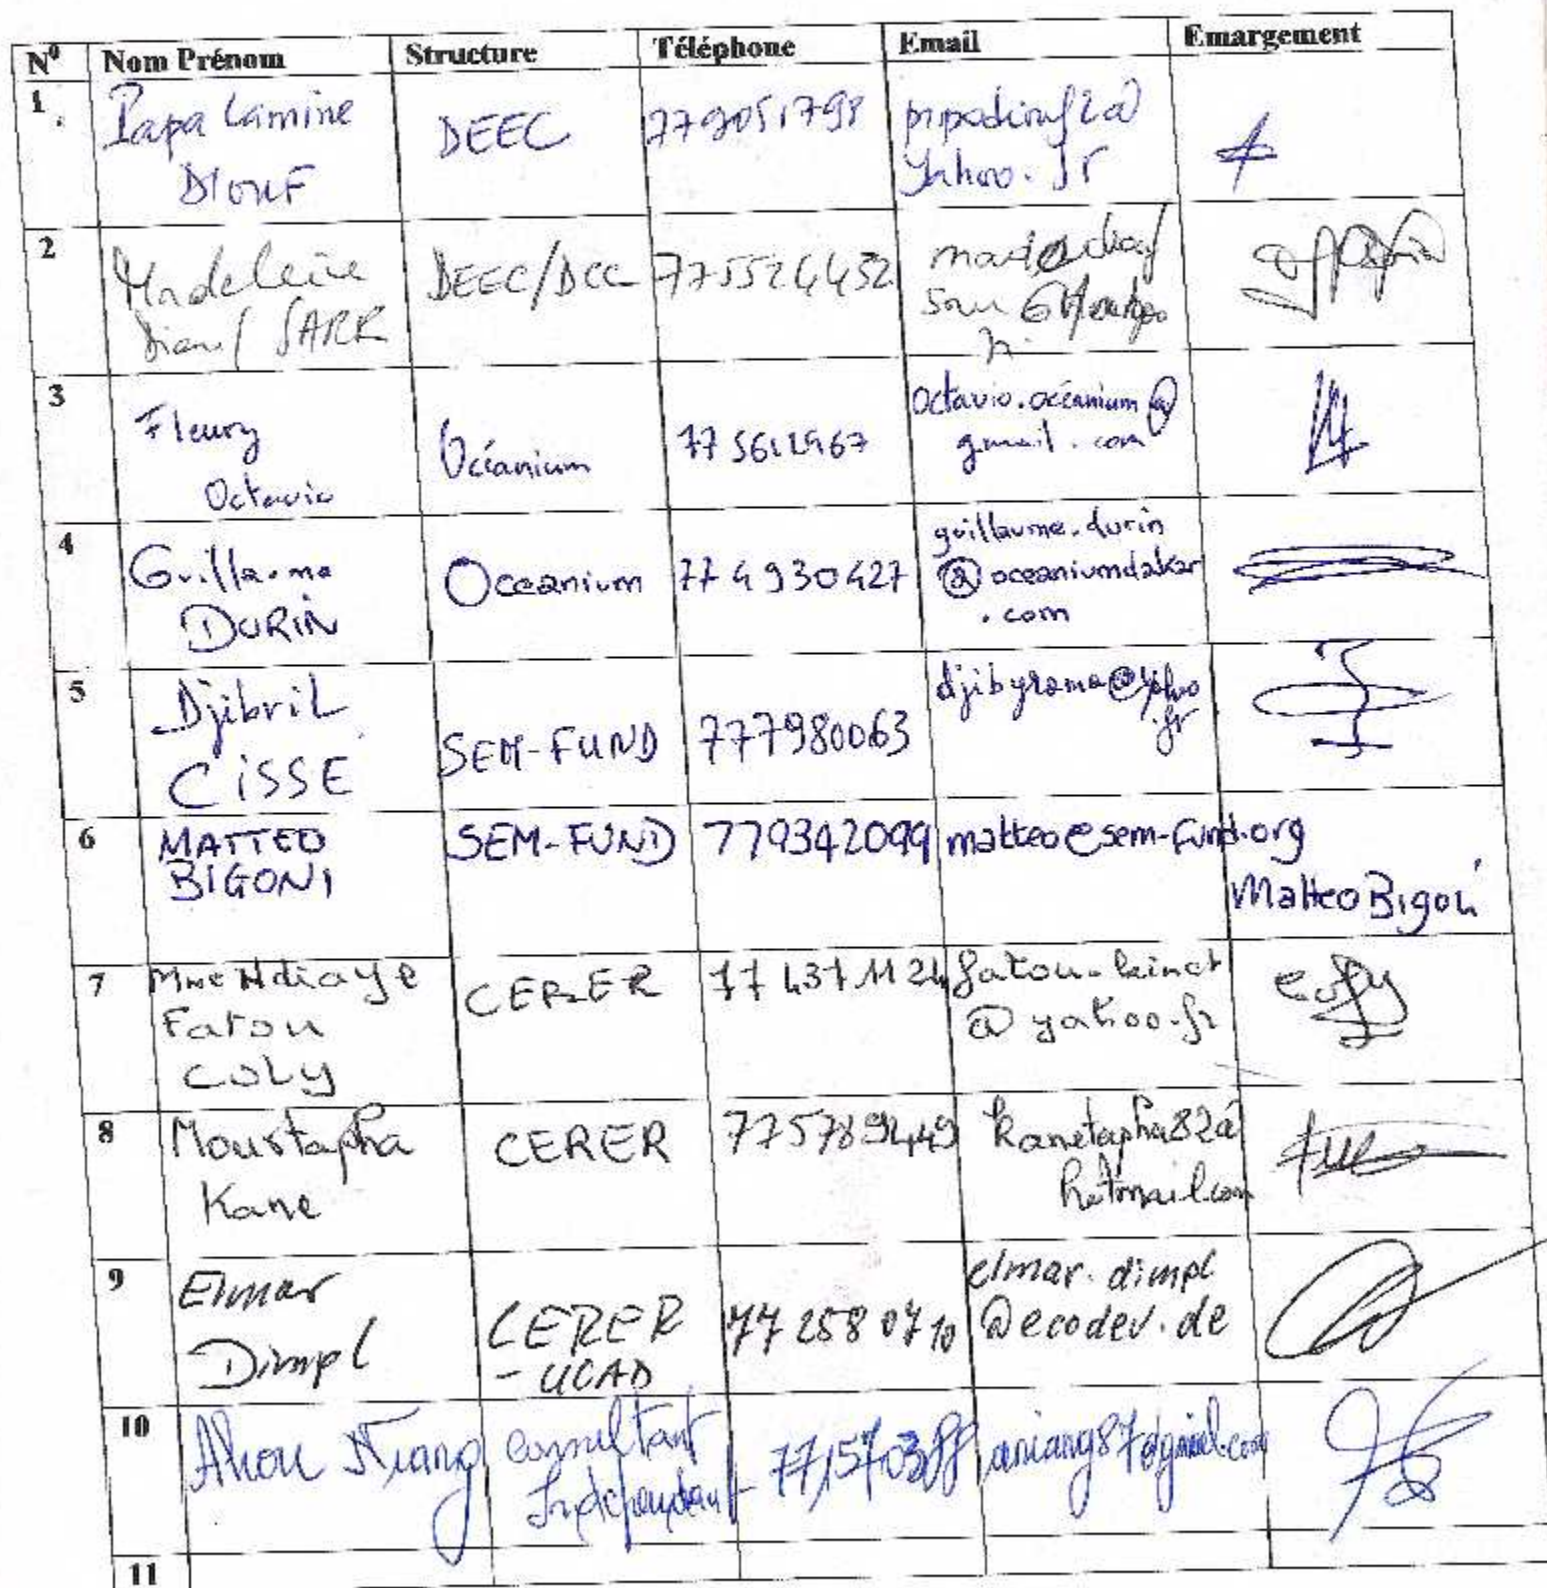 Nº Nom Prénom Structure Téléphone Email Emargement
1. Papa Lamine DIOUF DEEC 779051798 @ yahoo.fr
2 Madeleine Diouf SARR DEEC/DCC 775524452
3 Fleury Octavio Océanium 77 5612967 octavio.océanium@ gmail.com
4 Guillaume DURIN Oceanium 77 4930427 guillaume.durin @oceaniumdakar .com
5 Djibril CISSE SEM-FUND 777980063 djibyrama@yahoo .fr
6 MATTEO BIGONI SEM-FUND 779342099 matteo@sem-fund.org Matteo Bigoni
7 Mme Ndiaye Fatou COLY CERER 77 437 11 24 @yahoo.fr
8 Moustapha Kane CERER 775789449 kanetapha82@ hotmail.com
9 Elmar Dimpl CERER - UCAD 77 258 07 10 elmar.dimpl @ecodev.de
10 Niang consultant Indépendant aniang87@gmail.com
11